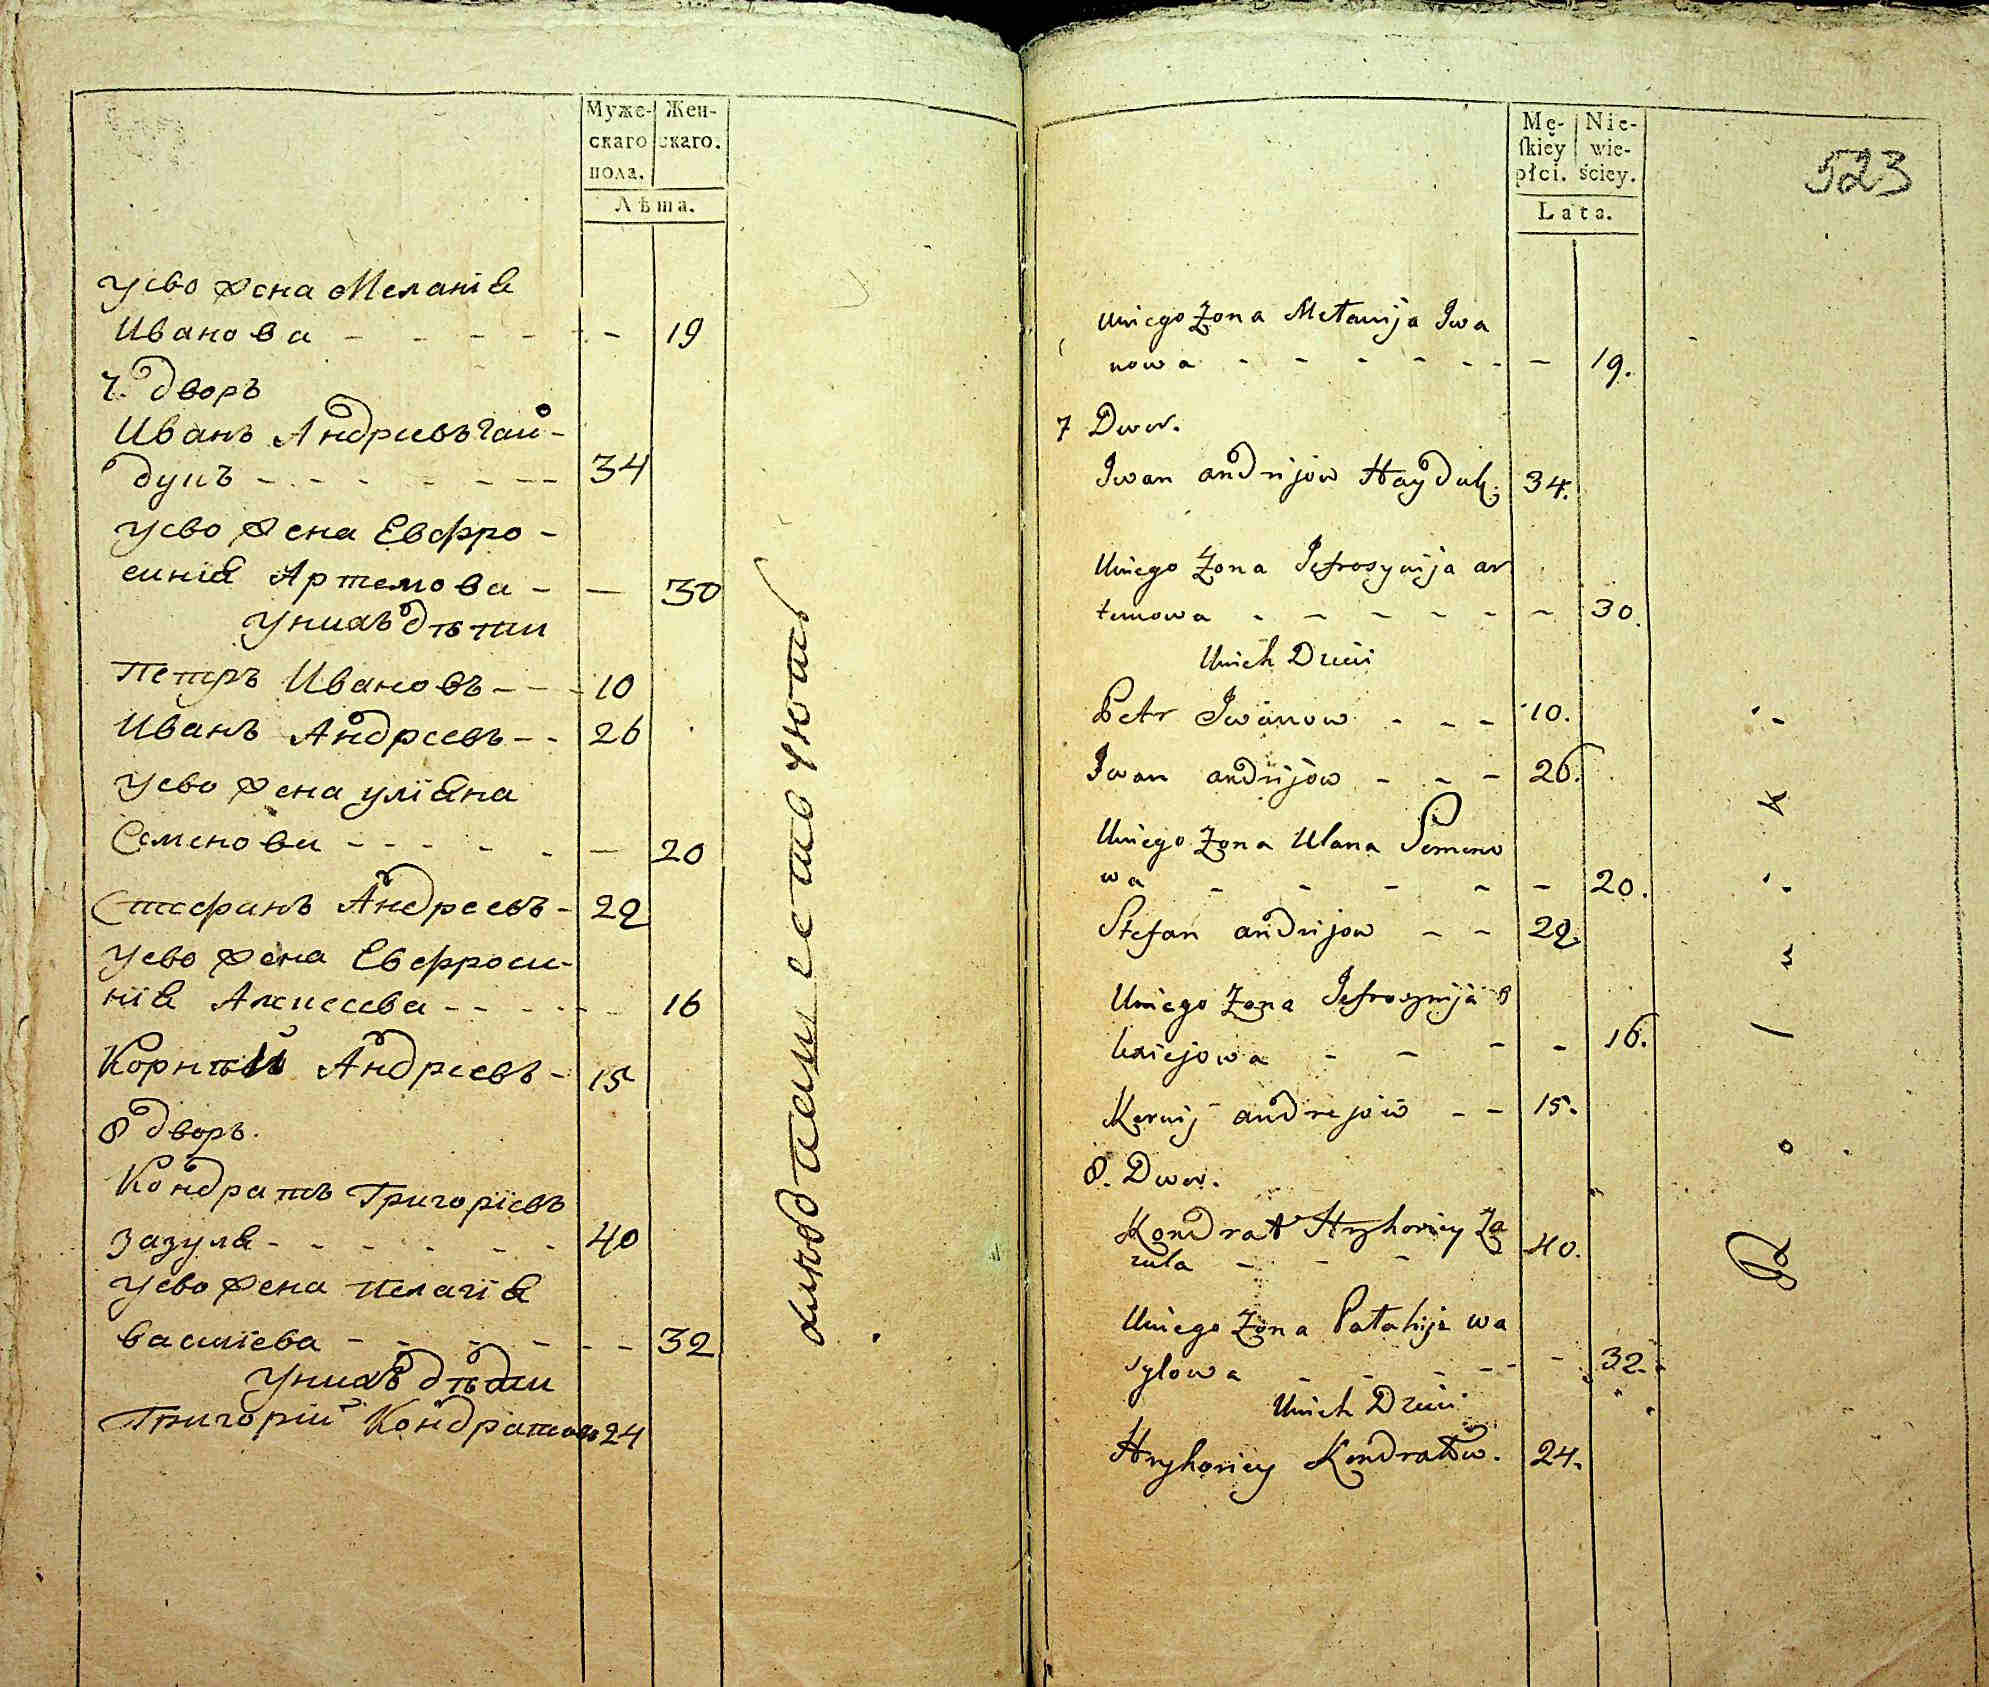 Муже- Жен-
скаго скаго.
пола.
Лѣта.
У ево жена Меланія
Иванова - - - - - - 19
7. дворъ
Иванъ Андреевъ Гай-
дукъ - - - - - - - 34
У ево жена Евфро-
синія Артемова - - 30
У нихъ дѣти
Петръ Ивановъ - - - 10
Иванъ Андреевъ - - 26
У ево жена Уліяна
Семенова - - - - - - 20
Стефанъ Андреевъ - 22
У ево жена Евфроси-
нія Алексеева - - - - - 16
Корнѣй Андреевъ - 15
8 дворъ.
Кондратъ Григоріевъ
Зазуля - - - - - - 40
У ево жена Пелагія
Василіева - - - - - - - 32
У нихъ дѣти
Григорій Кондратовъ 24
Mę- Nie-
skiey wie-
płci. ściey.
Lata.
523
U niego Żona Mełanija Iwa
nowa - - - - - - - 19.
7 Dwor.
Iwan andrijow Hayduk. 34.
U niego Żona Jefrosynija ar
temowa - - - - - - - 30.
U nich Dzieci
Petr Iwanow - - - 10.
Iwan andrijow - - - 26.
U niego Żona Ulana Semeno
wa - - - - - 20.
Stefan andrijow - - 22.
U niego Żona Jefrosynija o
lexiejowa - - - - 16.
Kornij andrejow - - 15.
8. Dwor.
Kondrat Hryhoriey Za
zula - - - 40.
U niego Żona Pałahija Wa
sylowa - - - - - - 32.
U nich Dzieci
Hryhoriey Kondratow. 24.